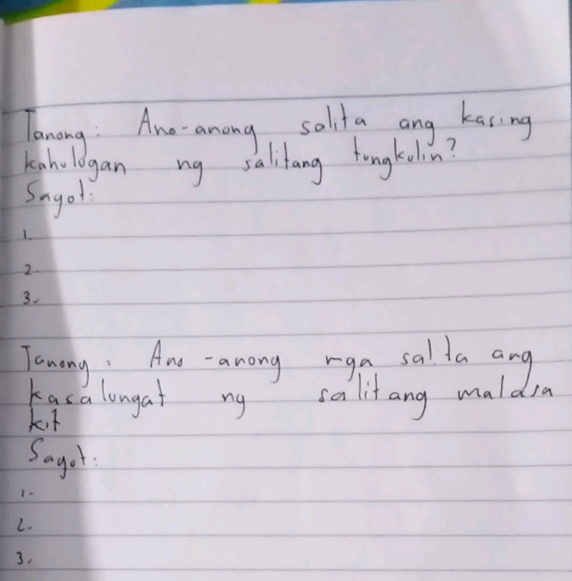 Tanong: Ano-anong salita ang kasing
kahulogan ng salitang tungkulin?
Sagot:
1.
2.
3.
Tanong: Ano-anong mga salita ang
kasalungat ng salitang malasa
kit
Sagot:
1.
2.
3.